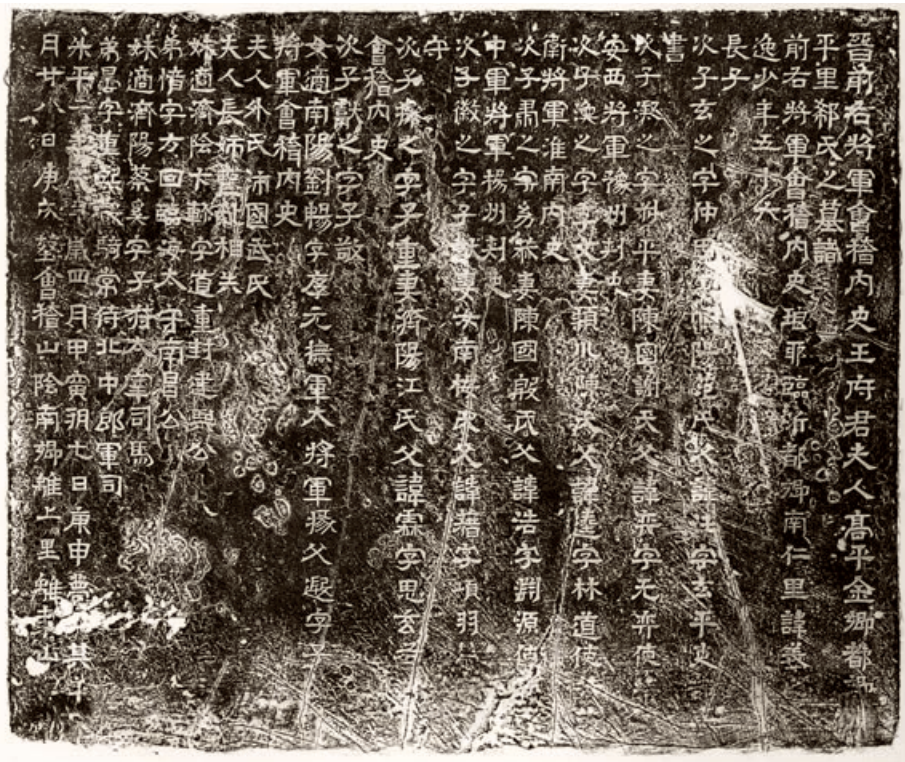 晉前右將軍會稽內史王府君夫人高平金鄉都
平里郗氏之墓識
前右將軍會稽內史琅耶臨沂都鄉南仁里諱羲
逸少年五十六
長子
次子玄之字仲思陽范氏父諱汪字玄平吏
書
次子凝之字叔平妻陳國謝氏父諱弈字无弈使
安西將軍豫州刺史
次子渙之字文妻潁川陳氏父諱逵字林道使
衛將軍淮南內史
次子肅之字幼恭妻陳國殷氏父諱浩字淵源使
中軍將軍楊州刺史
次子徽之字子妻汝南梅氏父諱籍字項羽
守
次子操之字子重妻濟陽江氏父諱霖字思玄
會稽內史
次子獻之字子敬
女適南陽劉暢字序元撫軍大將軍掾父遐字子
將軍會稽內史
夫人外氏沛國武氏
夫人長姊
妹適濟陰卞軫字道重封建興公
弟愔字方回臨海太守南昌公
妹適濟陽蔡字子叔太宰司馬
弟曇字道熙散騎常侍北中郎軍司
升平二年歲四月甲寅朔七日庚申薨其年
月廿八日庚辰塟會稽山陰南鄉離上里離亭山